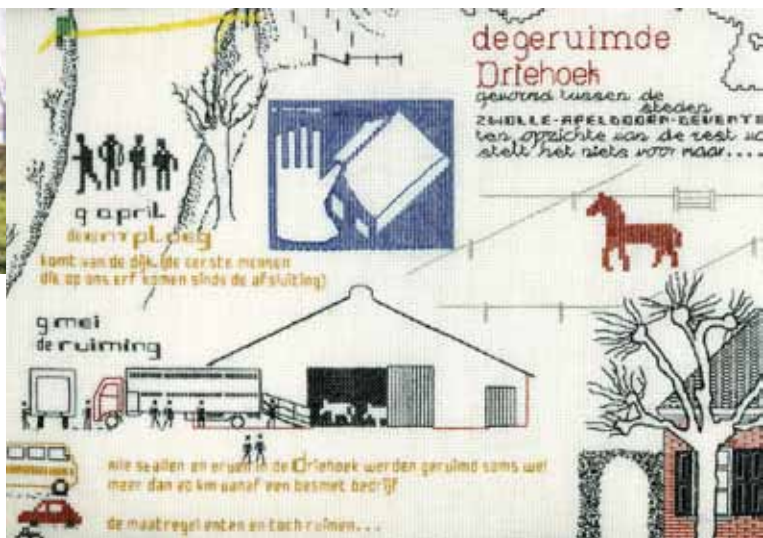 de geruimde
Driehoek
gevormd tussen de
steden
ZWOLLE-APELDOORN-DEVENTE
ten opzichte van de rest va
stelt het niets voor maar....
9 april
entploeg
komt van de dijk (de eerste mensen
die op ons erf komen sinds de afsluiting)
9 mei
de ruiming
Alle stallen en erven in de Driehoek werden geruimd soms wel
meer dan 20 km vanaf een besmet bedrijf
de maatregel enten en toch ruimen...